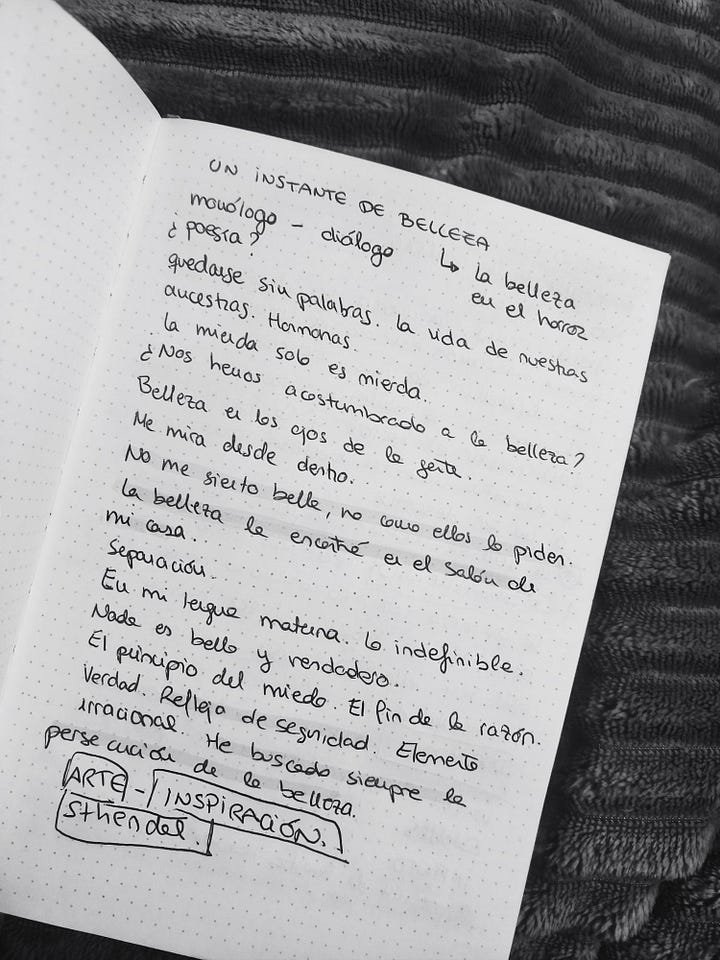 UN INSTANTE DE BELLEZA
monólogo - diálogo ↳ la belleza
en el horror
¿poesía?
quedarse sin palabras. la vida de nuestras
ancestras. Hormonas.
la mierda solo es mierda.
¿Nos hemos acostumbrado a la belleza?
Belleza en los ojos de la gente.
Me mira desde dentro.
No me siento bella, no como ellos lo piden.
la belleza la encontré en el salón de
mi casa.
Separación.
En mi lengua materna. Lo indefinible.
Nada es bello y verdadero.
El principio del miedo. El fin de la razón.
Verdad. Reflejo de seguridad. Elemento
irracional. He buscado siempre la
persecución de la belleza.
ARTE - INSPIRACIÓN.
Sthendal.